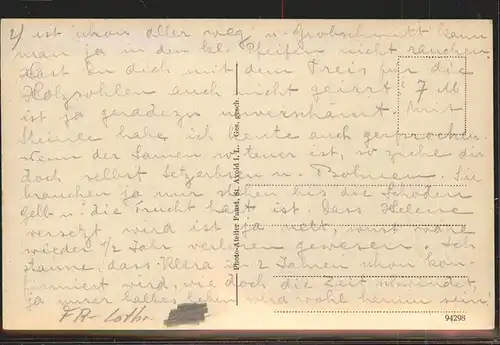 2) ist schon aller weg u. Grobschnitt kann
man ja in den kl. Pfeifen nicht rauchen
Hast Du dich mit dem Preis für die
Holzsohlen auch nicht geirrt 7 M
ist ja geradezu unverschämt. Mit
habe ich heute auch gesprochen
Wenn der Samen so teuer ist, so ziehe dir
doch selbst Setzerbsen u. Bohnen. Sie
brauchen ja nur stehen bis die Schoden
gelb u. die Frucht hart ist. Dass Helene
versetzt wird ist ja nett, sonst wäre
wieder 1/2 Jahr verloren gewesen. Ich
staune, dass Klara in 2 Jahren schon kon-
firmiert wird, wie doch die Zeit schwindet,
ja unser halbes Leben wird wohl herum sein,
Photo-Atelier Faust, St. Avold i. L. Ges. gesch.
FR- Lothr.
94298